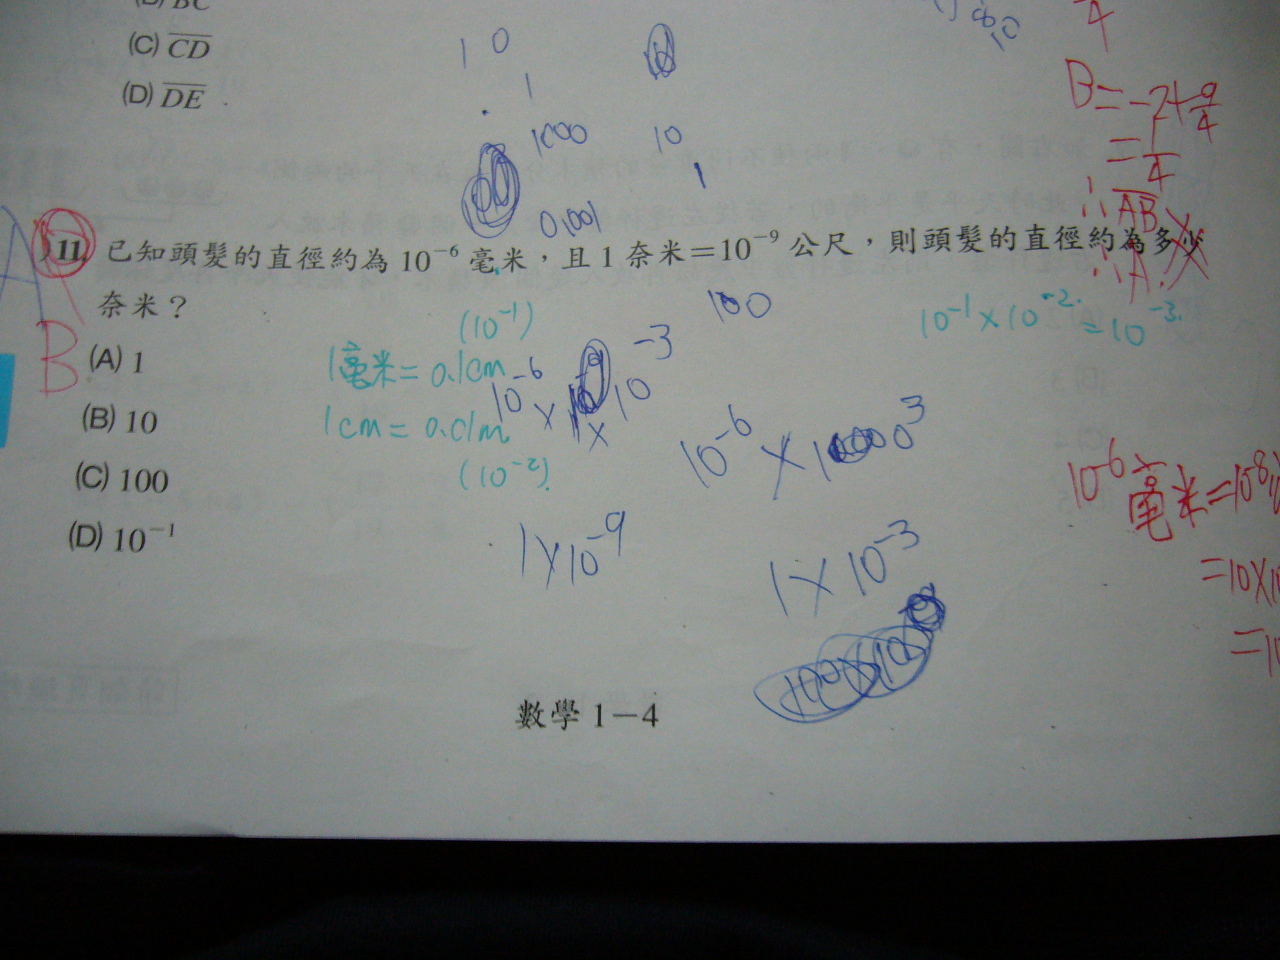 (C) CD
(D) DE
1 0
1
1000 10
1
0.001
B = -2 + 9/4
= 1/4
∴ AB
∴ A.
11. 已知頭髮的直徑約為 10⁻⁶ 毫米，且 1 奈米＝10⁻⁹ 公尺，則頭髮的直徑約為多少
奈米？
A
B
(A) 1
(B) 10
(C) 100
(D) 10⁻¹
(10⁻¹)
1毫米 = 0.1cm
1cm = 0.01m
(10⁻²).
100
10⁻¹ × 10⁻² = 10⁻³.
10⁻⁶ ×
10⁻³
10⁻⁶ ×
1 × 10⁻⁹
1 × 10⁻³
10⁻⁶ 毫米 = 10⁻⁸
= 10 ×
數學 1－4